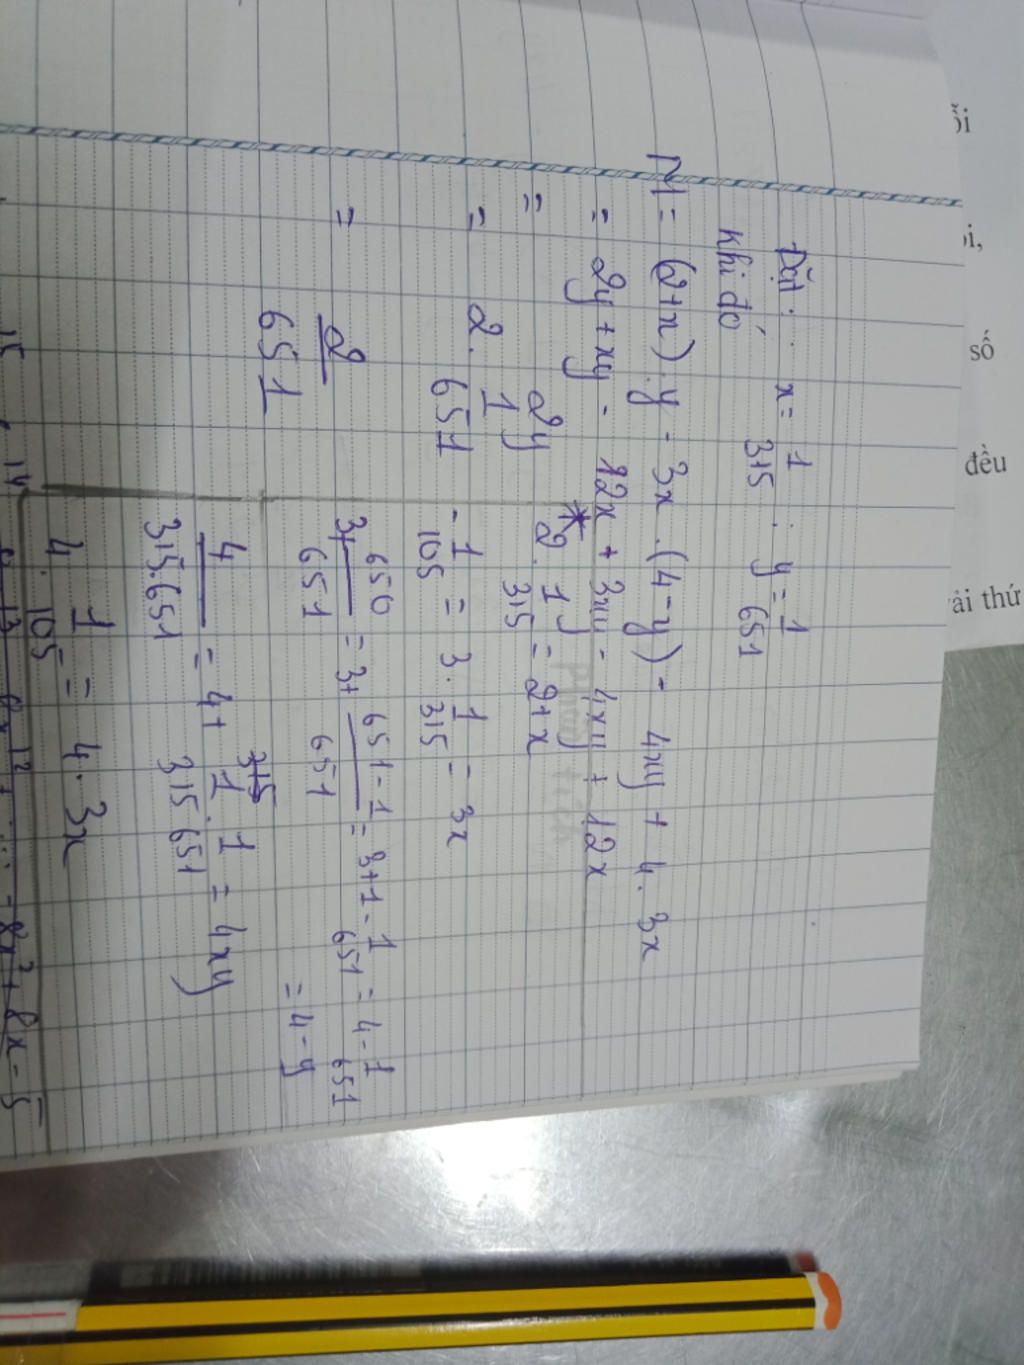 Đặt: x = 1/315 ; y = 1/651
khi đó
M = (2+x).y - 3x.(4-y) - 4xy + 4.3x
= 2y + xy - 12x + 3xy - 4xy + 12x
= 2y
= 2. 1/651
= 2/651
* 2. 1/315 = 2+x
- 1/105 = 3. 1/315 = 3x
3+ 650/651 = 3+ 651-1/651 = 3+1- 1/651 = 4- 1/651
= 4-y
4/315.651 = 4+ 1/315 . 1/651 = 4xy
4. 1/105 = 4. 3x
ỗi
ời,
số
đều
vải thứ